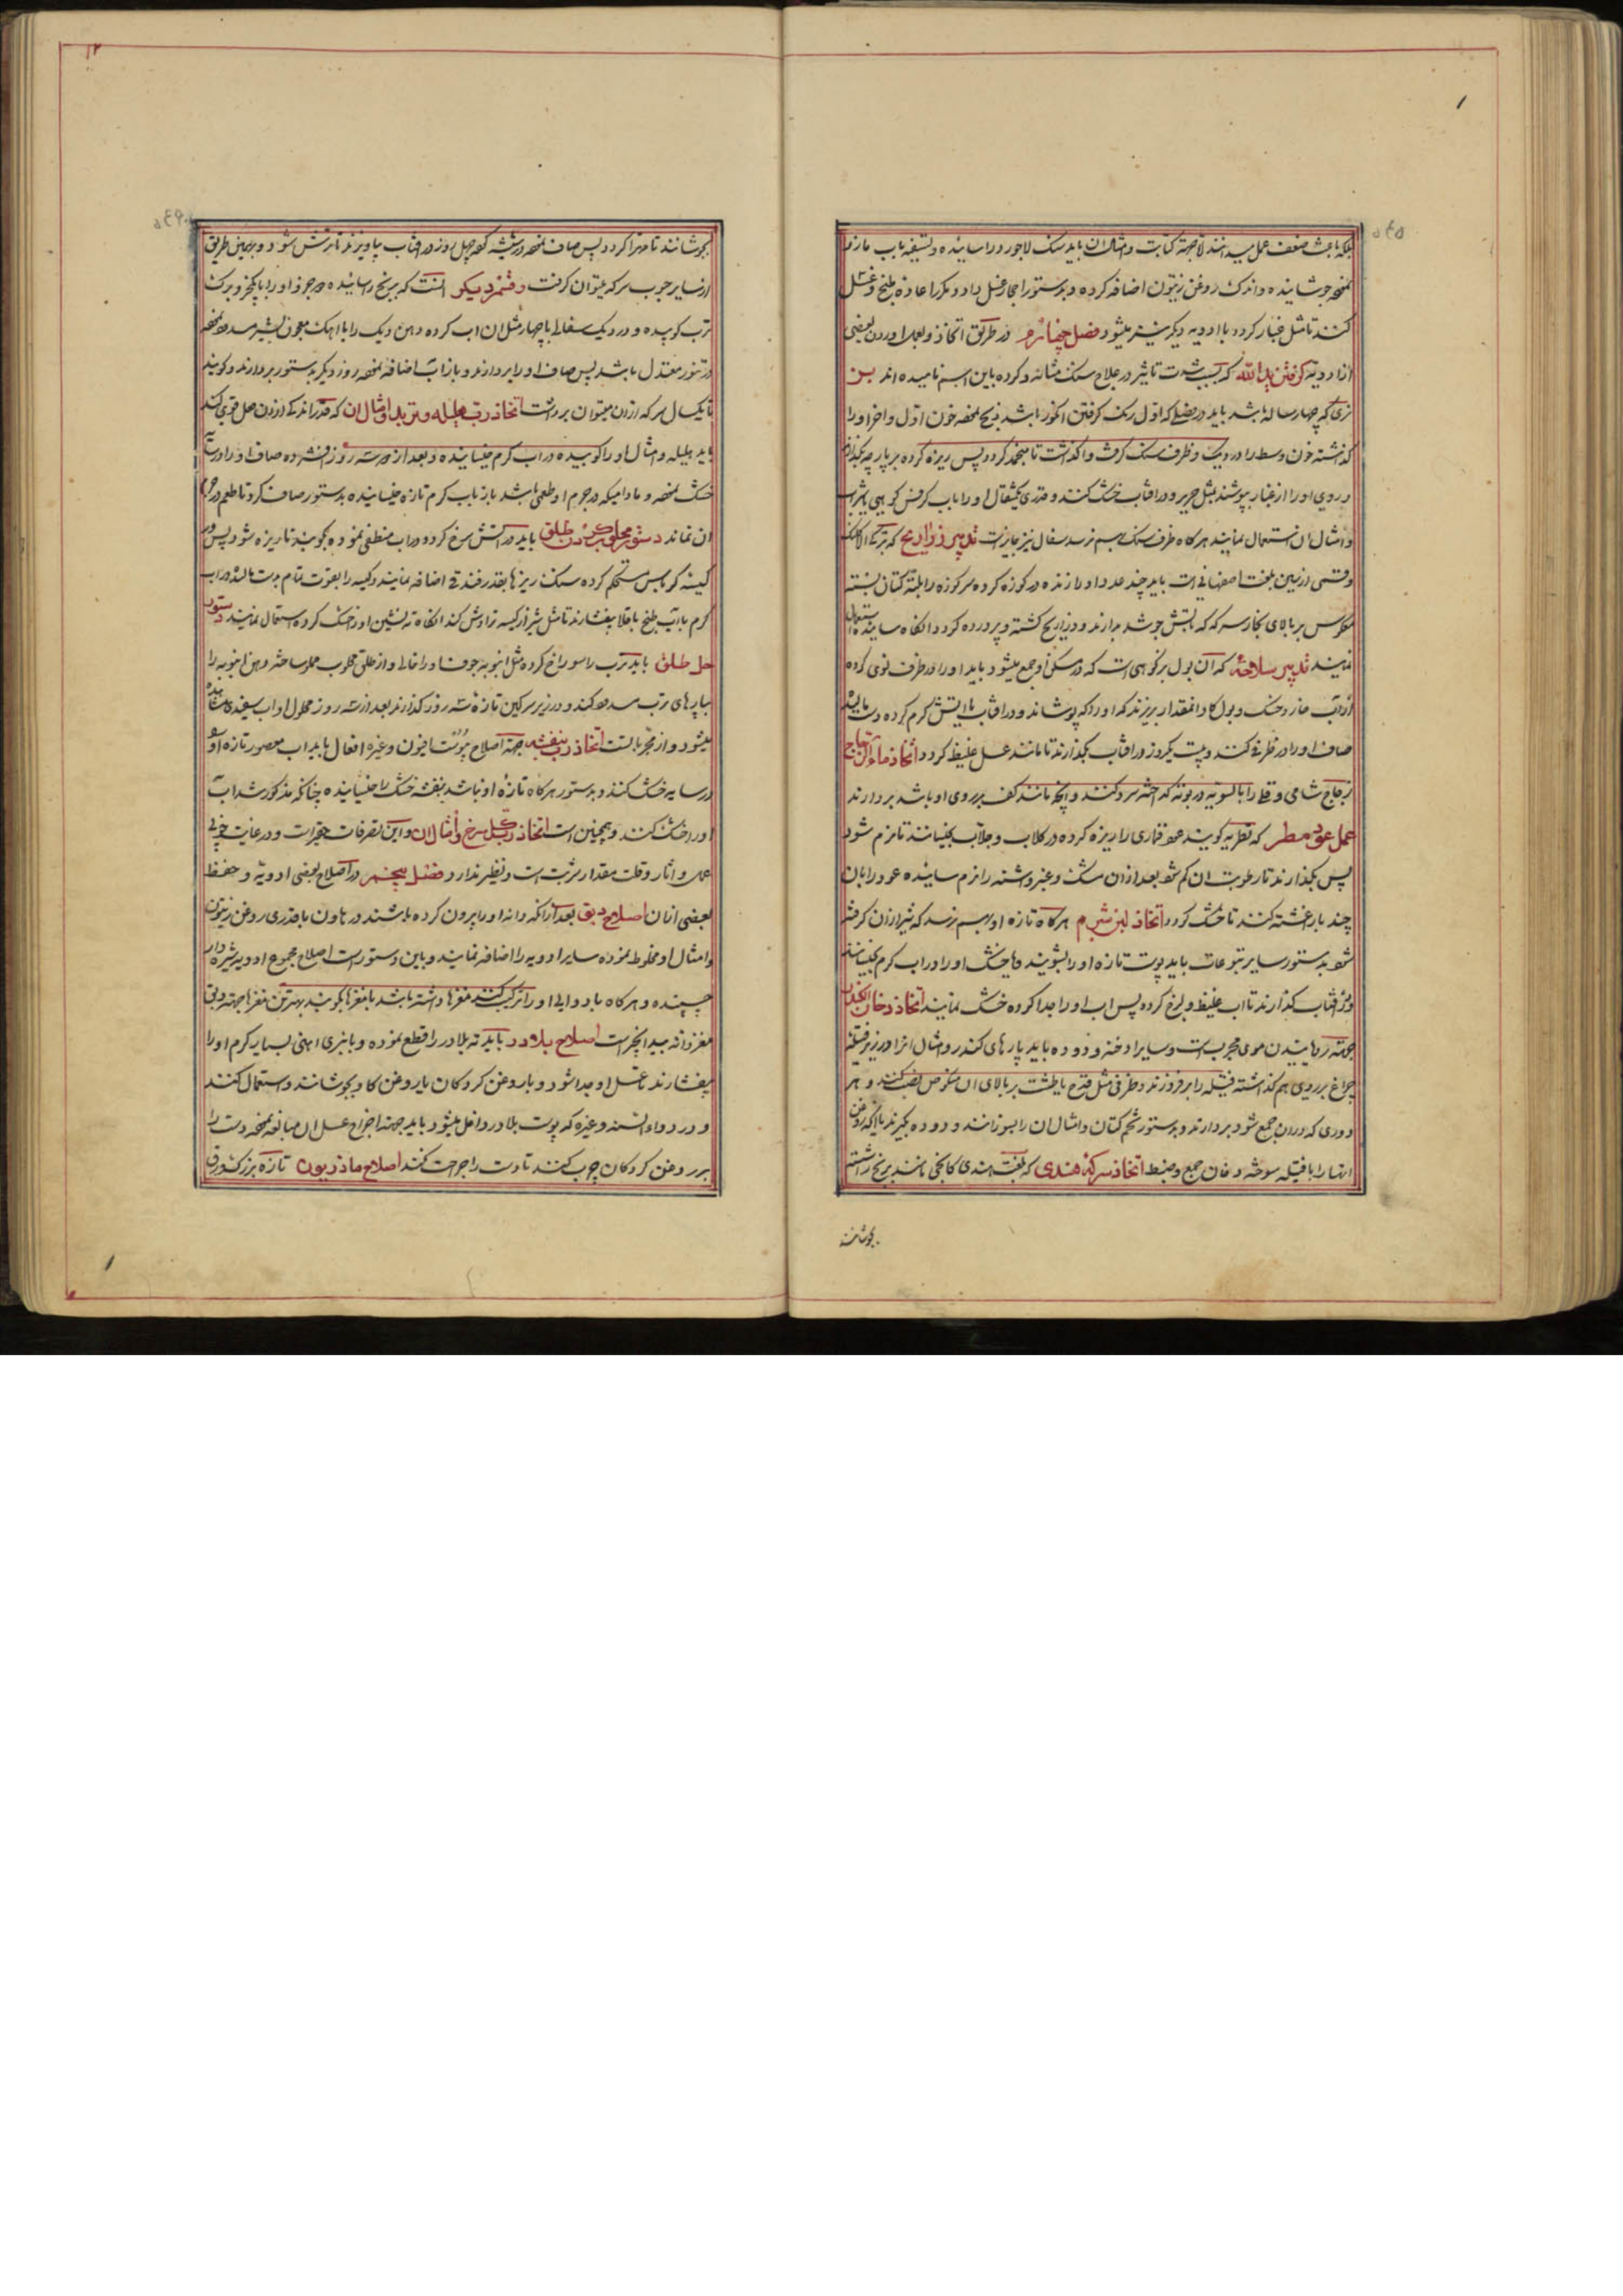 بلکه باعث ضعف عمل میدانند لاجهة کتابت و امثال ان باید سنک لاجورد را سائیده و تسقیه باب مازو
نموده جوشانیده و اندک روغن زیتون اضافه کرده و بدستور احجار غسل داد و مکرر اعاده طبخ و غسل
کنند تا مثل غبار کردد با ادویه دیکر میشود فصل چهارم در طریق اتخاذ و بعمل اوردن بعضی
از ادویه کرفتن یدالله که بسبب شدت تاثیر در علاج سنک مثانه و کرده باین اسم نامیده اند بز
نری که چهار ساله باشد باید در فصلی که اول رنک کرفتن انکور باشد ذبح نموده خون اول و اخر او را
کذاشته خون وسط را در دیک و ظرف سنک کرفت و اکذاشت تا منجمد کردد پس ریزه کرده بر پارچه بکذارند
و روی او را از غبار بپوشند بمثل حریر و در افتاب خشک کنند و قدر یکمثقال او را باب کرفس کوهی یا شراب
و امثال ان استعمال نمایند هرکاه ظرف سنک بهم نرسد سفال نیز جایز است تدبیر ذراریح که بترکی الاکلنک
و قسمی از زمین بلغت اصفهانی است باید چند عدد او را زنده در کوزه کرده سر کوزه را بلته کتان بسته
معکوس بر بالای بخار سرکه که باتش جوشد بدارند و ذراریح کشته و پرورده کردد انکاه ساییده استعمال
نمایند تدبیر سلاجه که آن بول بز کوهی است که در مسکن او جمع میشود باید او را در ظرف نوی کرده
از آب خار و خسک و بول کاو انقدر بریزند که او را که پوشاند و در افتاب یا باتش کرم کرده دست مالیده
صاف او را در ظرفی کنند و بیست یکروز در افتاب بکذارند تا مانند عسل غلیظ کردد اتخاذ ماء الزجاج
زجاج شامی و قلی را بالسویه در بوته کداخته سرد کنند و انچه مانند کف بر روی او باشد بردارند
عمل عود مطر که مطریه کویند عود قماری را ریزه کرده در کلاب و جلاب بخیسانند تا نرم شود
پس بکذارند تا رطوبت ان کم شود بعد ازان مشک و عنبر و اشنه را نرم سائیده عود را بان
چند بار اغشته کنند تا خشک کردد اتخاذ لبن شبرم هرکاه تازه او بهم نرسد که شیر ازان کرفته
شود بدستور سایر یتوعات باید پوست تازه او را بشویند و خشک او را در اب کرم بخیسانند
و در افتاب کذارند تا اب غلیظ و لزج کردد پس اب او را جدا کرده خشک نمایند اتخاذ دخان الکندر
جهته رویانیدن موی مجرب است و سایر ادخنه و دوده باید پارهای کندر و امثال انرا در زیر فتیله
چراغ بر روی هم کذاشته فتیله را برفروزند و ظرفی مثل قدح یا طشت بر بالای ان منکوس نصب کنند و هر
دودی که دران جمع شود بردارند و بدستور تخم کتان و امثال ان را بسوزانند و دوده بکیرند یا انکه روغن
انها را با فتیله سوخته دخان جمع و ضبط اتخاذ سرکه هندی که بلغت هندی کانجی نامند برنج را شسته
بجوشانند
بجوشانند تا مهرا کردد پس صاف نموده در شیشه کرده چهل روز در افتاب بیاویزند تا ترش شود و بهمین طریق
از سایر حبوب سرکه میتوان کرفت و قسم دیکر انست که برنج را سائیده و هر جزو او را با پنجزو برک
ترب کوبیده و در دیک سفال با چهار مثل ان اب کرده دهن دیک را با اهک معجون بشیر سد نموده
در تنور معتدل باشد پس صاف او را بردارند و باز آب اضافه نموده روز دیکر بدستور بردارند و کویند
تا یکسال سرکه ازان میتوان برداشت اتخاذ رب هلیله و تربد و امثال ان که قدر اندکی ازان عمل قوی کند
باید هلیله و امثال او را کوبیده در اب کرم خیسانیده و بعد از سه روز افشرده صاف او را در سایه
خشک نموده و مادامیکه در جرم او طعمی باشد باز باب کرم تازه خیسانیده بدستور صاف کرد تا طعم در جرم
ان نماند دستور محلوب کردن طلق باید در اتش سرخ کرد و در اب منطفی نموده بکوبند تا ریزه شود پس در
کیسه کرباس مستحکم کرده سنک ریزها بقدر فندقی اضافه نمایند و کیسه را بقوت تمام بدست مالند در اب
کرم یا آب طبخ باقلا بیفشارند تا مثل شیر از کیسه تراوش کند انکاه ته نشین او را خشک کرده استعمال نمایند دستور
حل طلق باید ترب را سوراخ کرده مثل انبوبه جوف او را خالی و از طلق محلوب مملو ساخته و دهن انبوبه را
بپارهای ترب سد کنند و در زیر سرکین تازه سه روز کذارند بعد از سه روز محلول او اب سفیدی مشاهده
میشود و از مجربات است اتخاذ رب بنفشه جهة اصلاح یبوست افیون و غیره افعال باید اب معصور تازه او
در سایه خشک کنند و بدستور هرکاه تازه او نباشد بنفشه خشک را خیسانیده چنانکه مذکور شد آب
او را خشک کنند و همچنین است اتخاذ رب کل سرخ و امثال ان و این تصرفات حقیر است و در غایت خوبی
عمل و اثار و قلت مقدار شربت است و نظیر ندارد فصل پنجم در اصلاح بعضی ادویه و حفظ
بعضی ازان اصلاح دبق بعد ازانکه دانه او را بیرون کرده باشند در هاون با قدری روغن زیتون
و امثال او مخلوط نموده سایر ادویه را اضافه نمایند و باین دستور است اصلاح مجموع ادویه شیره دار
چسپنده و هرکاه با دوایی او را ترکیب کنند مغزها داشته باشد با مغزها بکوبند بهترین مغزها جهته دبق
مغز دانه بید انجیر است اصلاح بلادر باید ته بلادر را قطع نموده و با انبری اهنی بسیار کرم او را
بیفشارند تا عسل او جدا شود و با روغن کردکان یا روغن کاو بجوشانند و استعمال کنند
و در دواء السنه و غیره که پوست بلادر داخل میشود باید جهته اخراج عسل ان مبالغه نموده دست را
بر روغن کردکان چرب کنند تا دست را جراحت نکند اصلاح ماذریون تازه بزرک ورق